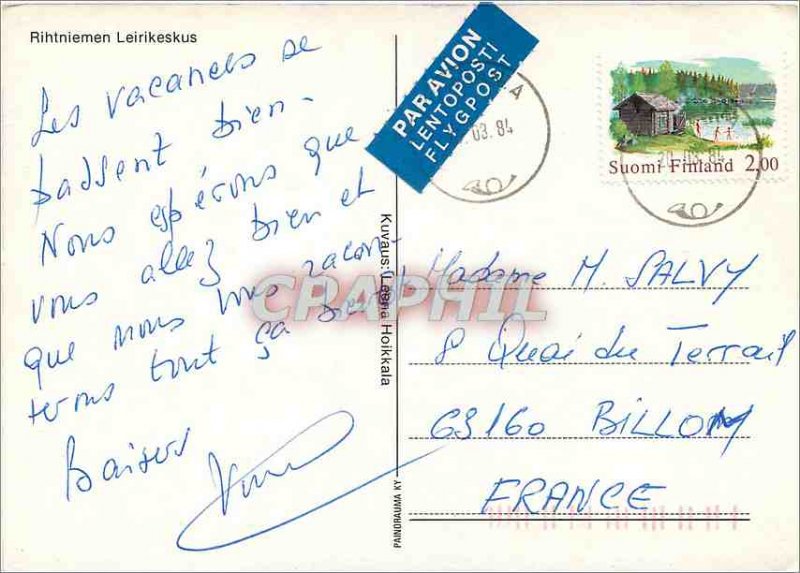 Rihtniemen Leirikeskus
Les vacances se
passent bien.
Nous espérons que
vous allez bien et
que nous nous racon-
terons tout ça bientôt
Baisers
PAR AVION
LENTOPOSTI
FLYGPOST
03.84
Suomi Finland 2,00
03.84
Kuvaus: Leena Hoikkala
PAINORAUMA KY
CPAPHIL
Madame M. SALVY
8 Quai du Terrail
63160 BILLOM
FRANCE